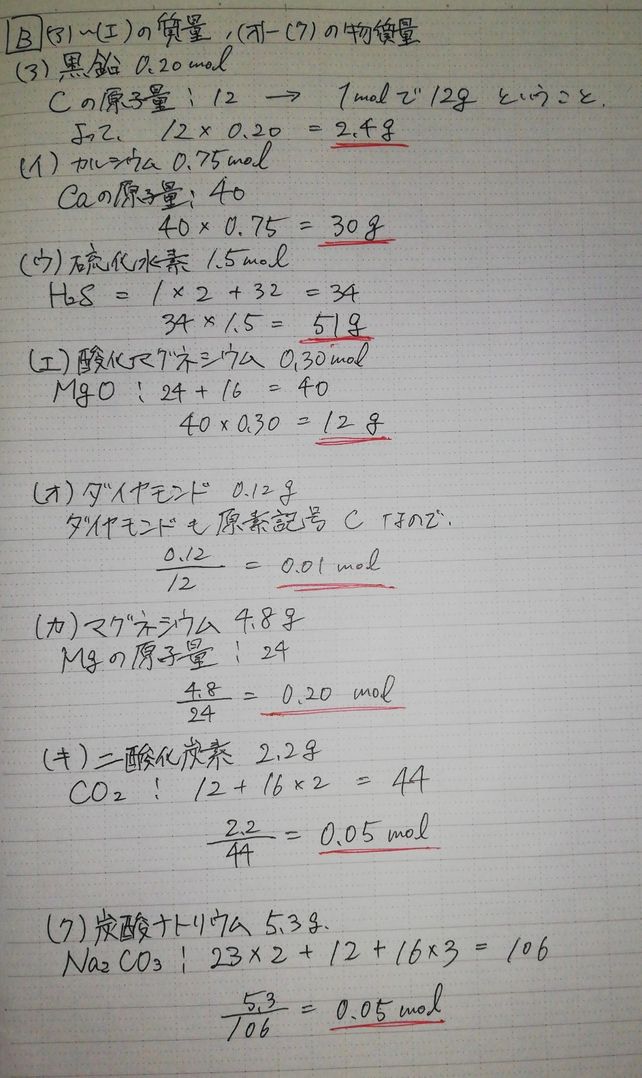 B (ア)~(エ)の質量,(オ)-(ク)の物質量
(ア) 黒鉛 0.20mol
Cの原子量: 12 → 1molで12gということ.
よって、 12×0.20 = 2.4g
(イ) カルシウム 0.75mol
Caの原子量: 40
40×0.75 = 30g
(ウ) 硫化水素 1.5mol
H₂S = 1×2+32 = 34
34×1.5 = 51g
(エ) 酸化マグネシウム 0.30mol
MgO : 24+16 = 40
40×0.30 = 12g
(オ) ダイヤモンド 0.12g
ダイヤモンドも原素記号 C なので.
0.12/12 = 0.01 mol
(カ) マグネシウム 4.8g
Mgの原子量: 24
4.8/24 = 0.20 mol
(キ) 二酸化炭素 2.2g
CO₂ : 12+16×2 = 44
2.2/44 = 0.05 mol
(ク) 炭酸ナトリウム 5.3g.
Na₂CO₃ : 23×2+12+16×3 = 106
5.3/106 = 0.05 mol